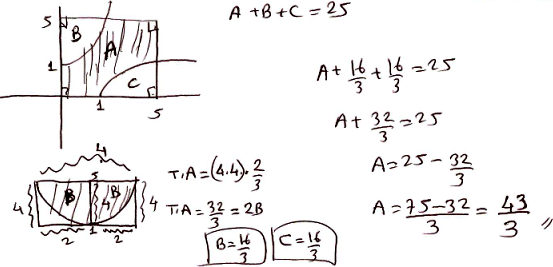 5
B
A
1
C
1
5
A + B + C = 25
A + 16/3 + 16/3 = 25
A + 32/3 = 25
A = 25 - 32/3
A = (75-32)/3 = 43/3 //
4
5
4
B
4
B
4
2
1
2
T.A = (4.4).2/3
T.A = 32/3 = 2B
B = 16/3
C = 16/3